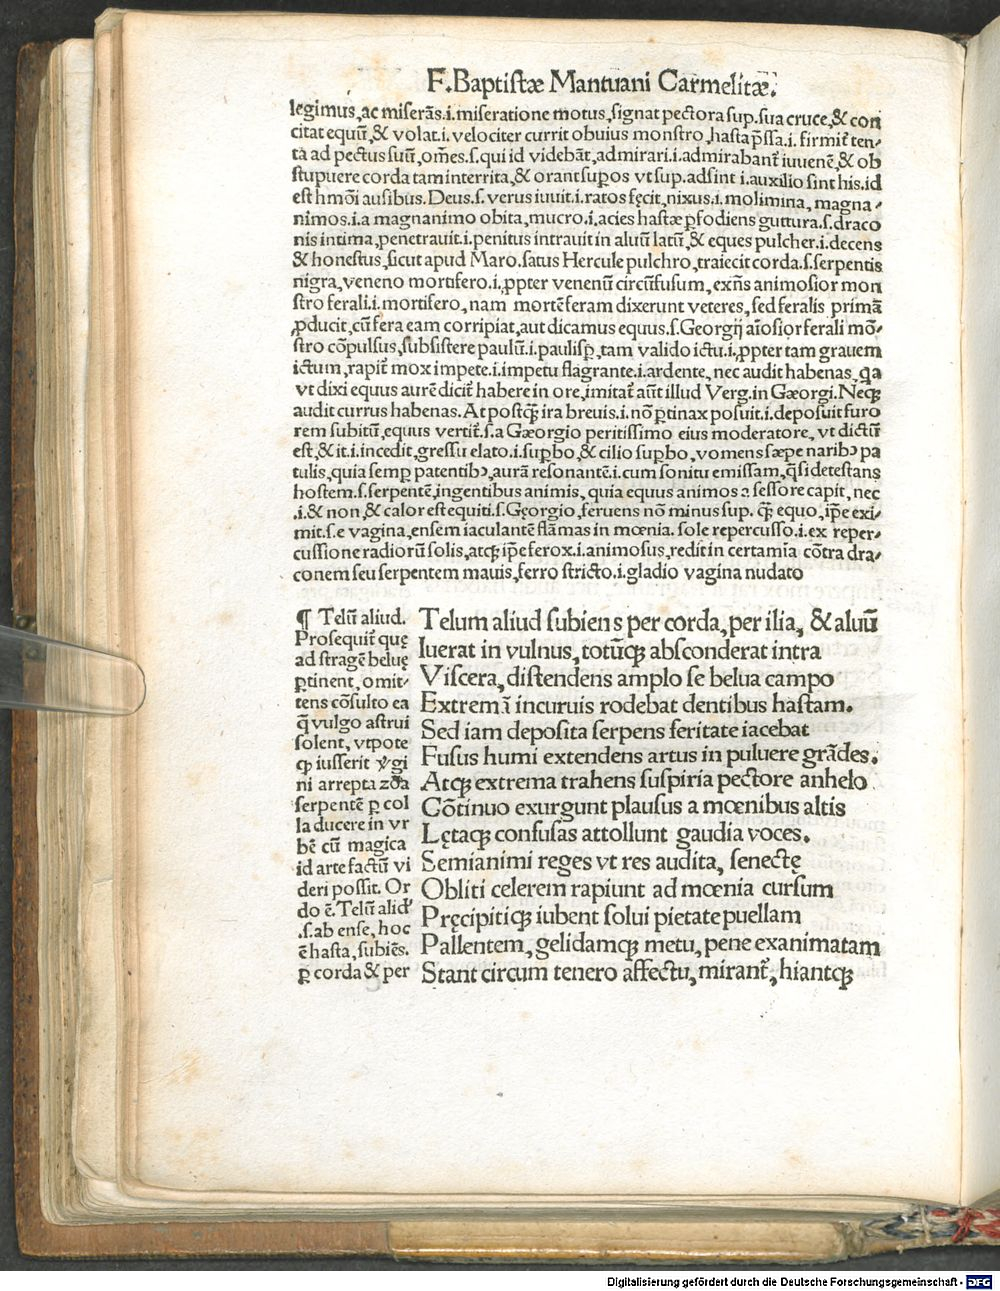 F.Baptistæ Mantuani Carmelitæ.
legimus, ac miserãs.i.miseratione motus, signat pectora sup.sua cruce, & con
citat equũ, & volat.i.velociter currit obuius monstro, hasta p̃ssa.i.firmit̃ ten-
ta ad pectus suũ, om̃es.s.qui id videbãt, admirari.i.admirabant̃ iuuenẽ, & ob
stupuere corda tam interrita, & orant suꝑos vt sup.adsint i.auxilio sint his.id
est hmõi ausibus. Deus.s.verus iuuit.i.ratos fęcit, nixus.i.molimina, magna-
nimos.i.a magnanimo obita, mucro.i.acies hastæ ꝑfodiens guttura.s.draco
nis intima, penetrauit.i.penitus intrauit in aluũ latũ, & eques pulcher.i.decens
& honestus, sicut apud Maro.satus Hercule pulchro, traiecit corda.s.serpentis
nigra, veneno mortifero.i.ꝓpter venenũ circũfusum, exñs animosior mon
stro ferali.i.mortifero, nam mortẽ feram dixerunt veteres, sed feralis primã
ꝓducit, cũ fera eam corripiat, aut dicamus equus.s.Georgij aĩosior ferali mõ-
stro cõpulsus, subsistere paulũ.i.paulisꝑ, tam valido ictu.i.ꝓpter tam grauem
ictum, rapit̃ mox impete.i.impetu flagrante.i.ardente, nec audit habenas, qa
vt dixi equus aurẽ dicit̃ habere in ore, imitat̃ aũt illud Verg.in Gæorgi. Neqꝫ
audit currus habenas. At postqꝫ̃ ira breuis.i.nõ ꝑtinax posuit.i.deposuit furo
rem subitũ, equus vertit̃.s.a Gæorgio peritissimo eius moderatore, vt dictũ
est, & it.i.incedit, gressu elato.i.suꝑbo, & cilio suꝑbo, vomens sæpe naribꝰ pa
tulis, quia semꝑ patentibꝰ, aurã resonantẽ.i.cum sonitu emissam, q̃si detestans
hostem.s.serpentẽ, ingentibus animis, quia equus animos a sessore capit, nec
.i.& non, & calor est equiti.s.Gęorgio, feruens nõ minus sup. qꝫ̃ equo, ip̃e exi-
mit.s.e vagina, ensem iaculantẽ flãmas in mœnia. sole repercusso.i.ex reper-
cussione radiorũ solis, atqꝫ ip̃e ferox.i.animosus, redit in certamĩa cõtra dra-
conem seu serpentem mauis, ferro stricto.i.gladio vagina nudato
¶ Telũ aliud.
Prosequit̃ quę
ad stragẽ beluę
ꝑtinent, omit-
tens cõsulto ea
q̃ vulgo astrui
solent, vtpote
qꝫ iusserit ỹgi
ni arrepta zõa
serpentẽ ꝑ col
la ducere in vr
bẽ cũ magica
id arte factũ vi
deri possit. Or
do ẽ. Telũ aliđ
.s.ab ense, hoc
ẽ hasta, subiẽs.
ꝑ corda & per
Telum aliud subiens per corda, per ilia, & aluũ
Iuerat in vulnus, totũqꝫ absconderat intra
Viscera, distendens amplo se belua campo
Extremã incuruis rodebat dentibus hastam.
Sed iam deposita serpens feritate iacebat
Fusus humi extendens artus in puluere grãdes.
Atqꝫ extrema trahens suspiria pectore anhelo
Cõtinuo exurgunt plausus a mœnibus altis
Lętaqꝫ confusas attollunt gaudia voces.
Semianimi reges vt res audita, senectę
Obliti celerem rapiunt ad mœnia cursum
Pręcipitiqꝫ iubent solui pietate puellam
Pallentem, gelidamqꝫ metu, pene exanimatam
Stant circum tenero affectu, mirant̃, hiantqꝫ
Digitalisierung gefördert durch die Deutsche Forschungsgemeinschaft - DFG